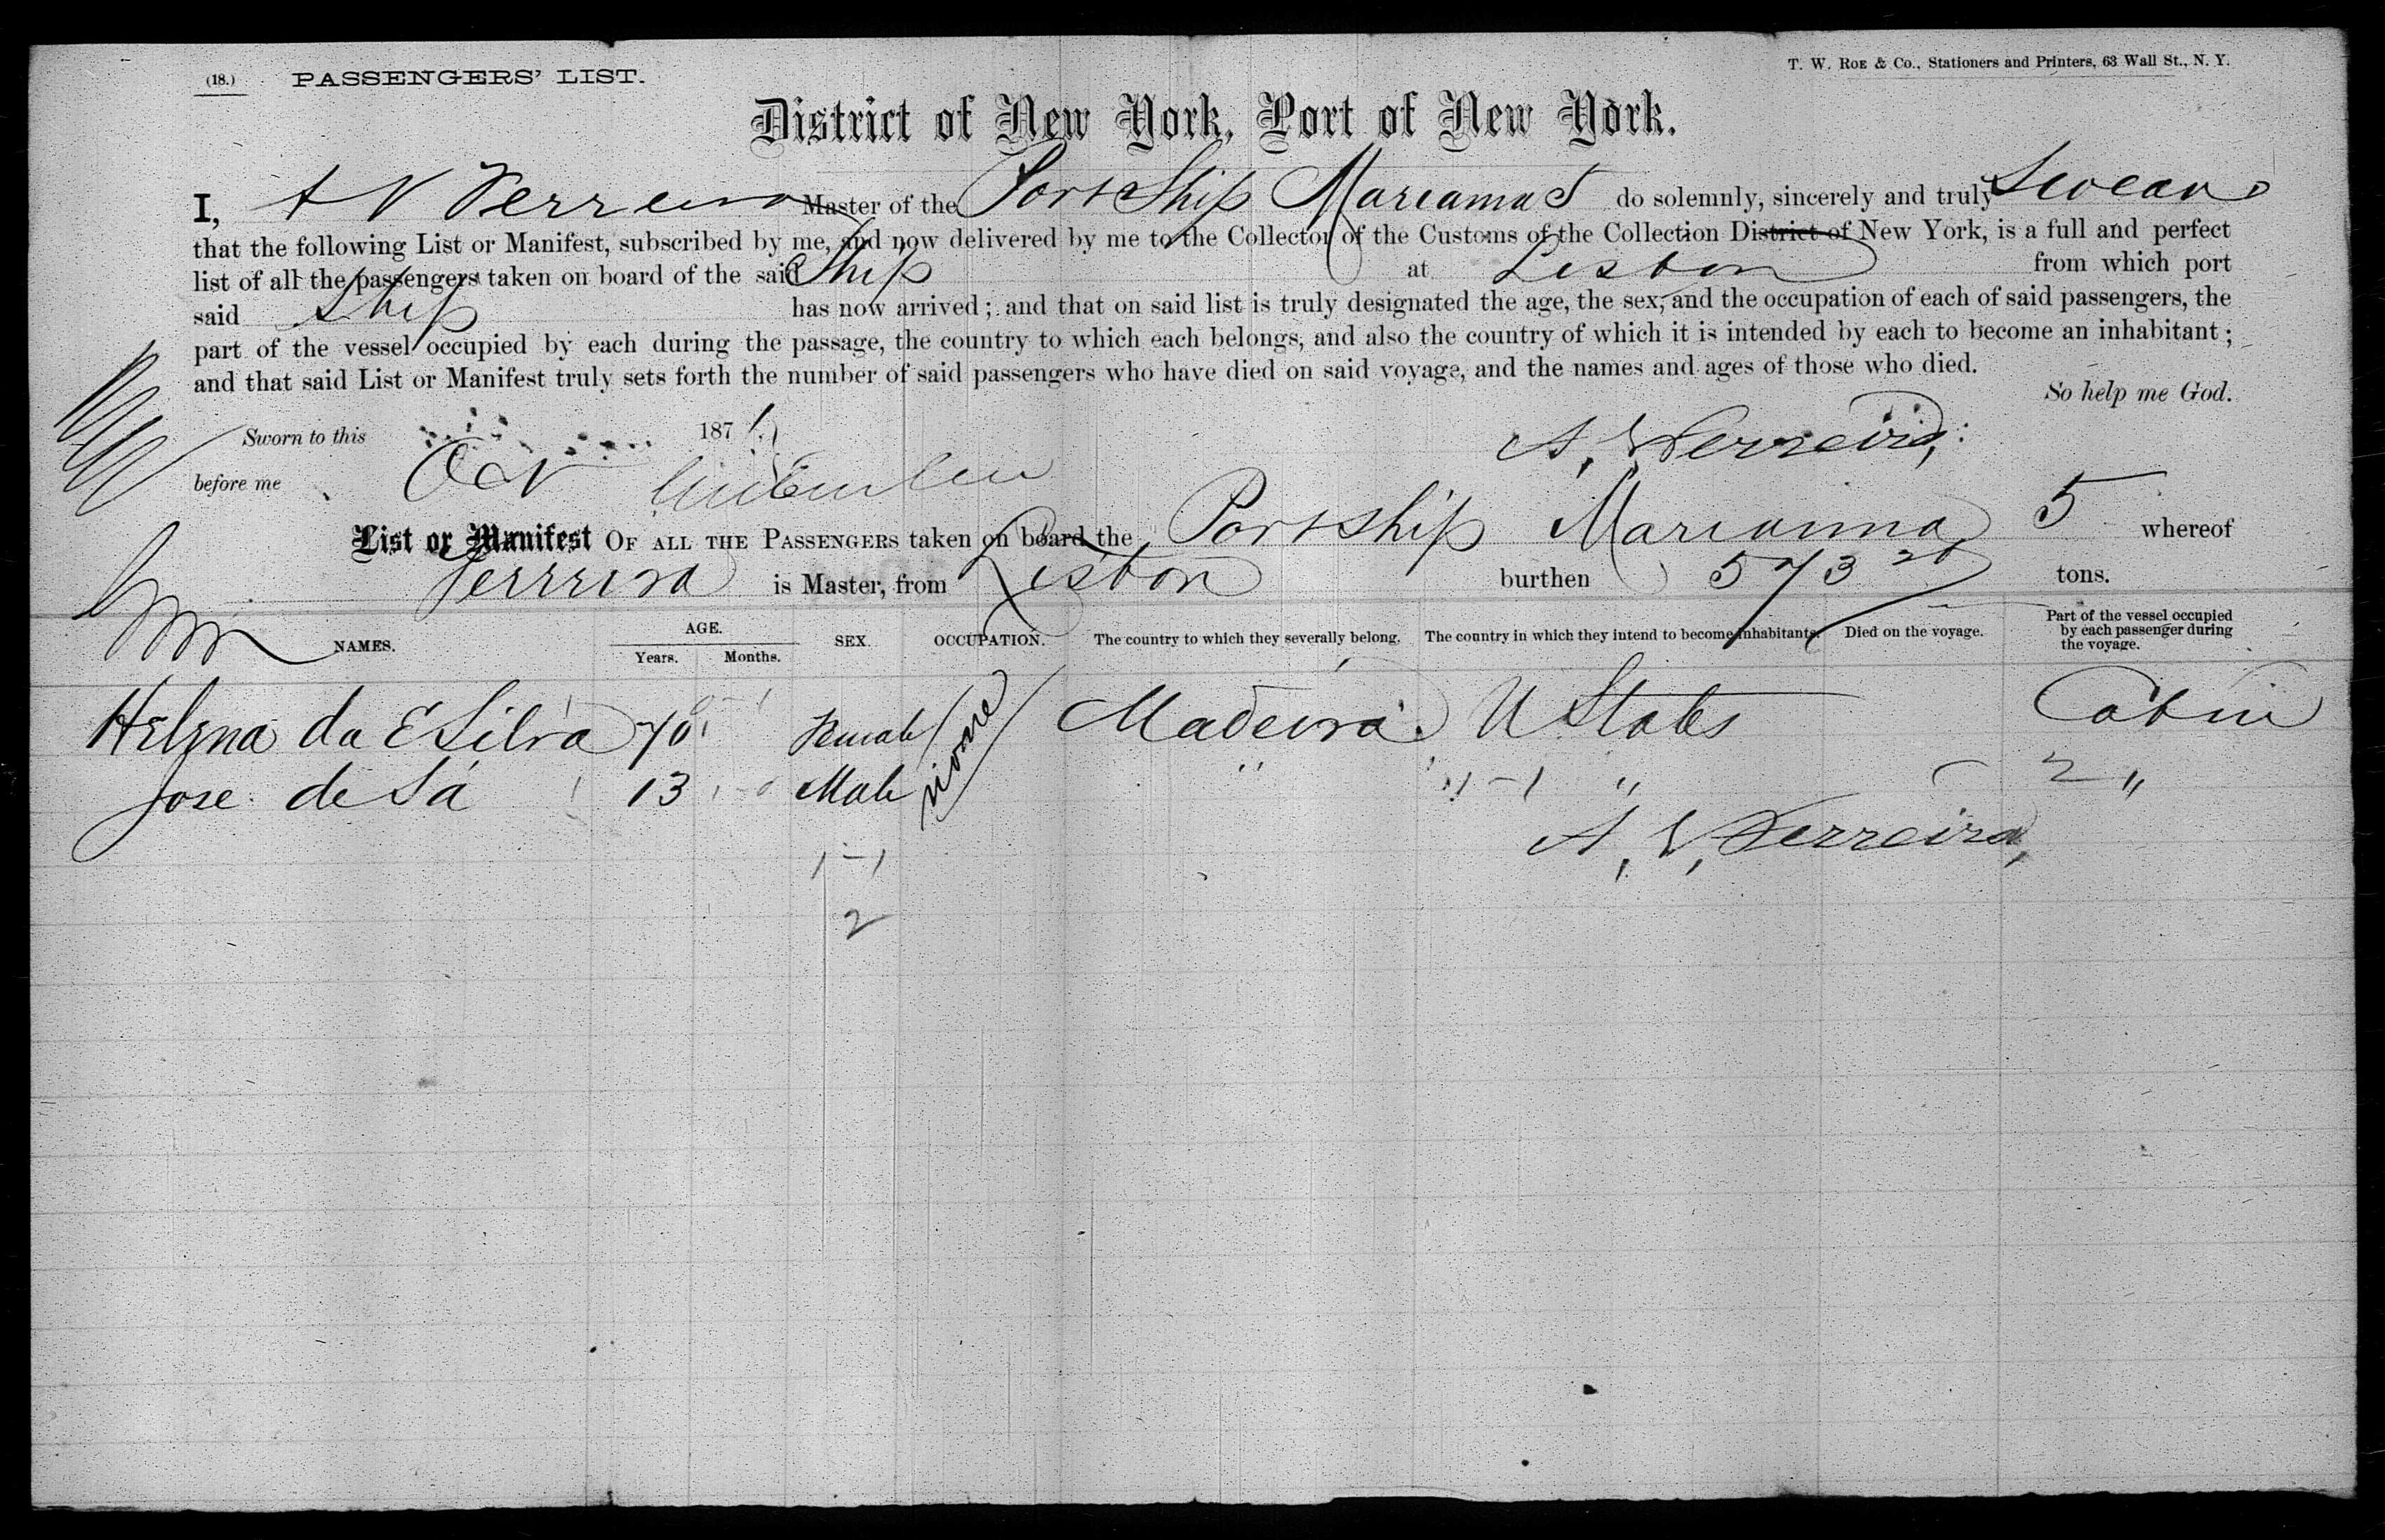 (18.) PASSENGERS' LIST.
T. W. ROE & Co., Stationers and Printers, 63 Wall St., N. Y.
District of New York, Port of New York.
I, A V Ferreira Master of the Port Ship Marianna 5 do solemnly, sincerely and truly Swear
that the following List or Manifest, subscribed by me, and now delivered by me to the Collector of the Customs of the Collection District of New York, is a full and perfect
list of all the passengers taken on board of the said Ship at Lisbon from which port
said Ship has now arrived; and that on said list is truly designated the age, the sex, and the occupation of each of said passengers, the
part of the vessel occupied by each during the passage, the country to which each belongs, and also the country of which it is intended by each to become an inhabitant;
and that said List or Manifest truly sets forth the number of said passengers who have died on said voyage, and the names and ages of those who died.
So help me God.
Sworn to this 187
A. V. Ferreira,
before me
List or Manifest OF ALL THE PASSENGERS taken on board the Port ship Marianna 5 whereof
Ferreira is Master, from Lisbon burthen 573 tons.
NAMES. AGE. Years. Months. SEX. OCCUPATION. The country to which they severally belong. The country in which they intend to become inhabitants. Died on the voyage. Part of the vessel occupied by each passenger during the voyage.
Helena da E Silva 70 Female none Madeira U States Cabin
Jose de Sá 13 Male " " " 2 "
A. V. Ferreira,
1-1
2